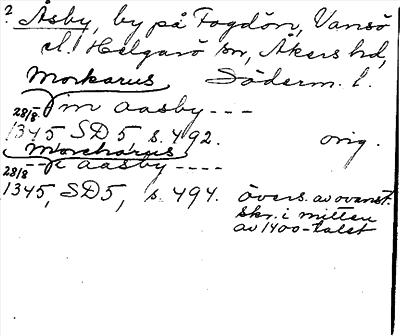 ? Åsby, by på Fogdön, Vansö
el. Helgarö sn, Åkers hd,
Morkarus Söderm. l.
m aasby ---
28/8 1345 SD 5 s. 492. orig.
Morcharus
--- i aasby ----
28/8 1345, SD5, s. 494. övers. av ovanst.
skr. i mitten
av 1400-talet